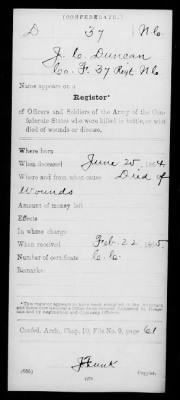 (CONFEDERATE.)
D 37 N.C.
J. C. Duncan
Co. F. 37 Regt. N.C.
Name appears on a
Register*
of Officers and Soldiers of the Army of the Con-
federate States who were killed in battle, or who
died of wounds or disease.
Where born
When deceased June 25, 1864
Where and from what cause Died of
Wounds
Amount of money left
Effects
In whose charge
When received Feb. 22, 1865
Number of certificate
Remarks:
*This register appears to have been compiled in the
Confed. Arch., Chap. 10, File No. 9, page 61
Copyist.